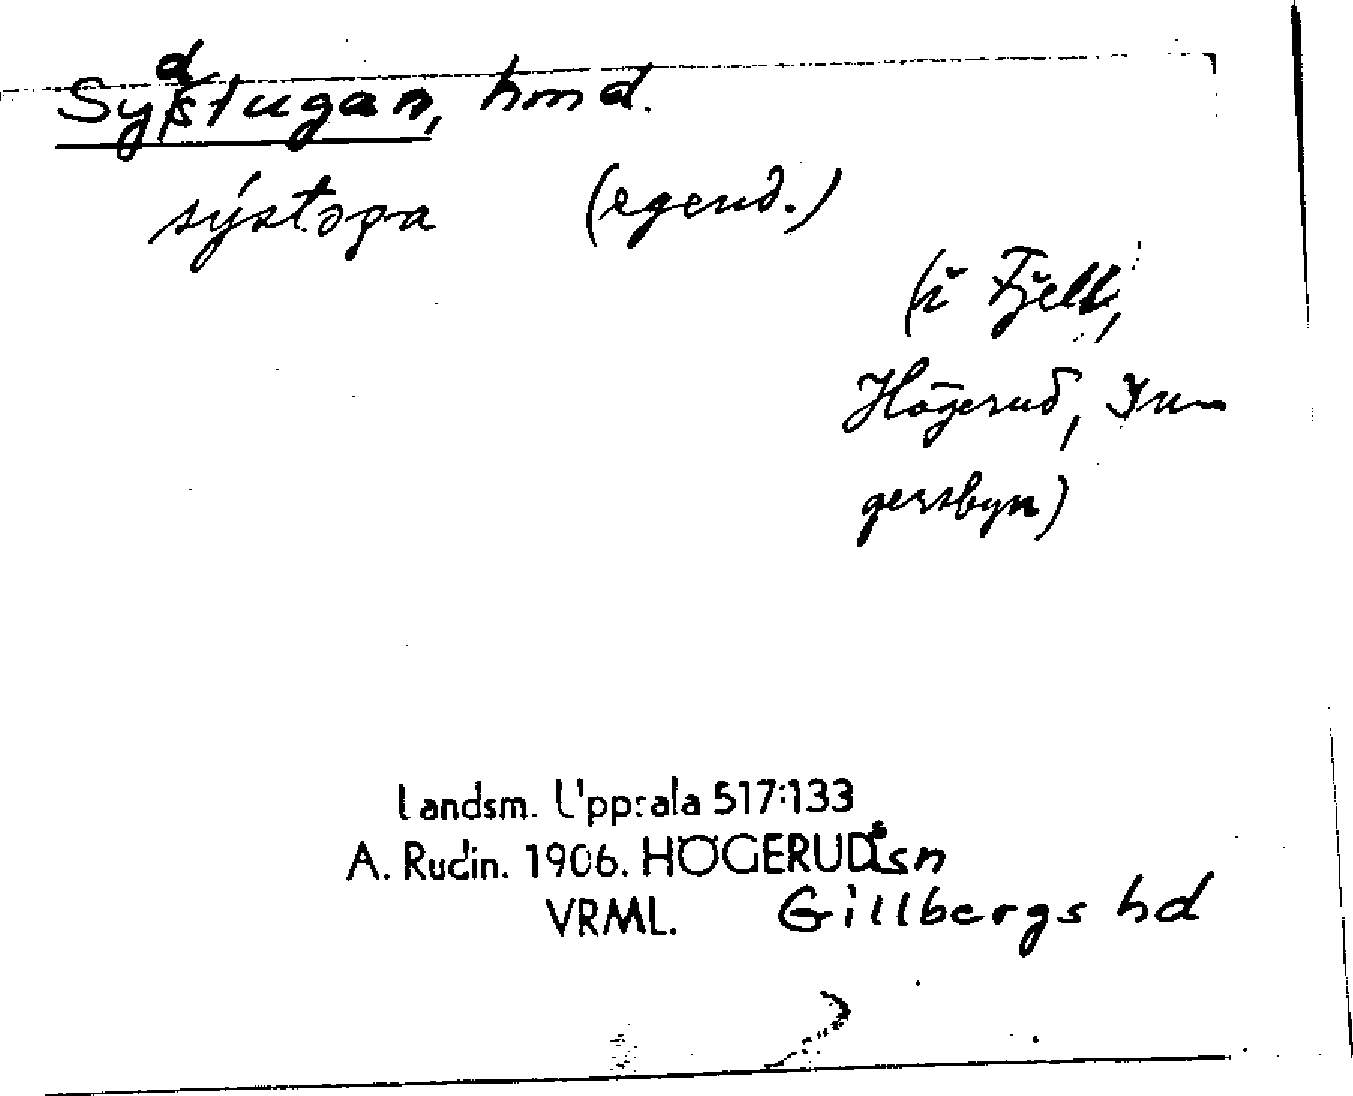 Sydstugan, hmd.
sýstopa (egend.)
(i Fjell,
Högerud, In-
gersbyn)
Landsm. Uppsala 517:133
A. Rudin. 1906. HÖGERUDS sn
VRML. Gillbergs hd